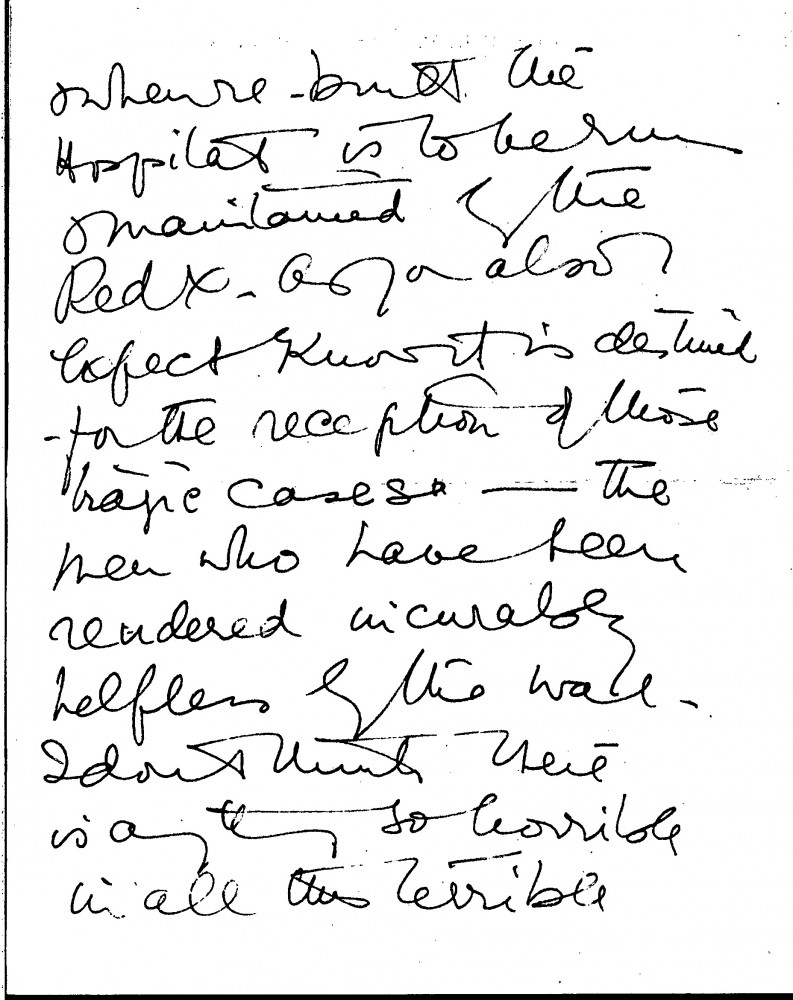 & when re-built the
Hospital is to be run
& maintained by the
Red X. As you also
expect know it is destined
for the reception of those
tragic cases — the
men who have been
rendered incurably
helpless by the war.
I don't think there
is anything so horrible
in all this terrible